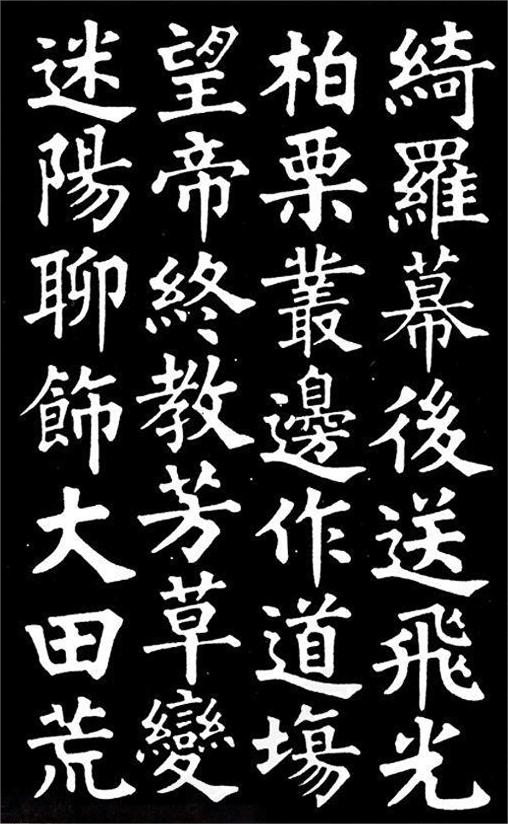 綺羅幕後送飛光
柏栗叢邊作道塲
望帝終教芳草變
迷陽聊飾大田荒